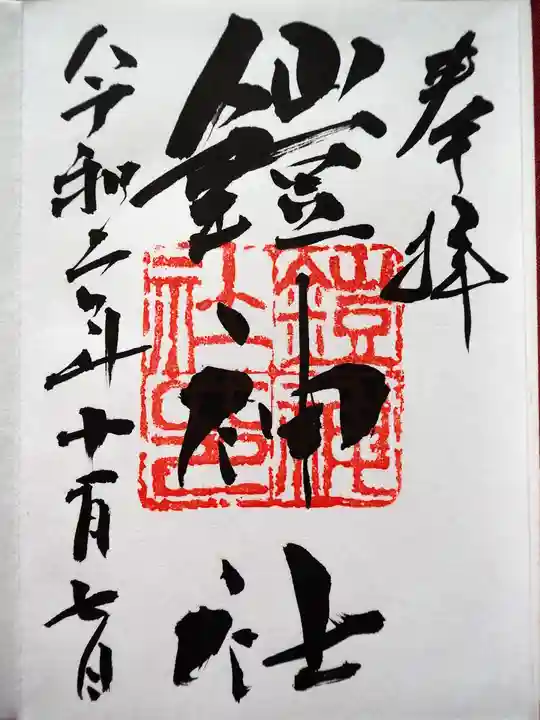 奉拝
鎧神社
鎧神社印
令和二年十一月七日